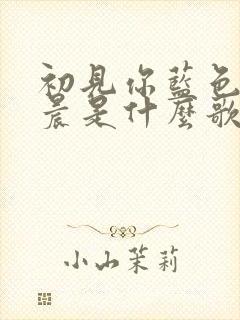 初見你藍色
晨是什麼歌
小山茉莉